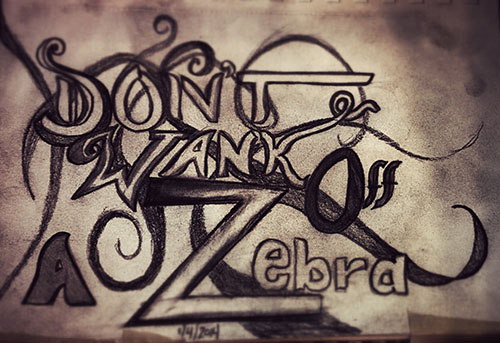 DON'T
WANK Off
A Zebra
1/4/2014